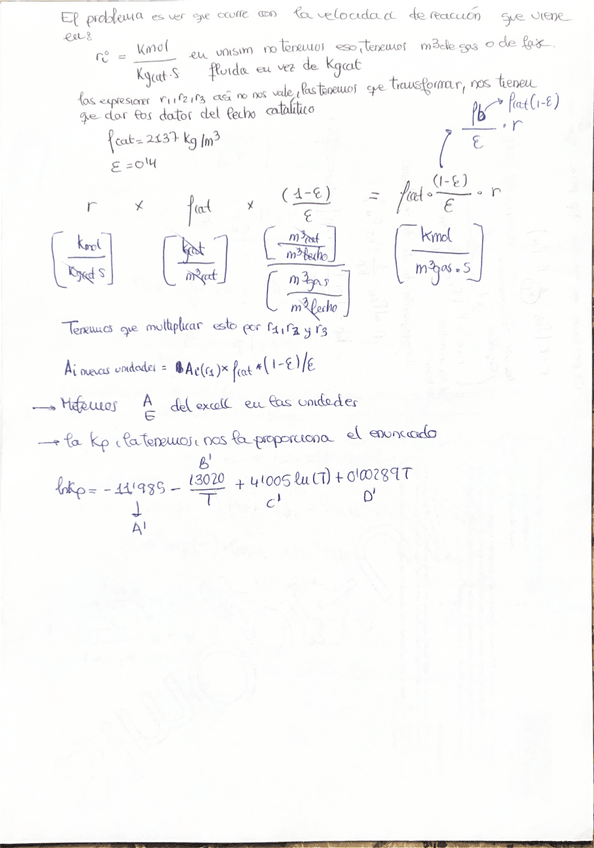 El problema es ver que ocurre con la velocidad de reacción que viene
en:
ri⁰ = Kmol / Kgcat·s en unisim no tenemos eso, tenemos m3 de gas o de fase
fluida en vez de Kgcat
las expresiones r1, r2, r3 así no nos vale, las tenemos que transformar, nos tienen
que dar los datos del lecho catalítico
ρcat = 2137 kg/m³
ρb / ε · r → ρcat(1-ε)
ε = 0'4
r × ρcat × (1-ε)/ε = ρcat · (1-ε)/ε · r
[Kmol / Kgcat s] [kgcat / m³cat] [m³cat / m³lecho] / [m³gas / m³lecho] [Kmol / m³gas·s]
Tenemos que multiplicar esto por r1, r2 y r3
Ai nuevas unidades = Ai(r1) * ρcat * (1-ε)/ε
→ Metemos A / E del excell en las unidades
→ la Kp, la tenemos, nos la proporciona el enunciado
B'
lnKp = -11'985 - 13020/T + 4'005 ln(T) + 0'00289T
↓ C' D'
A'